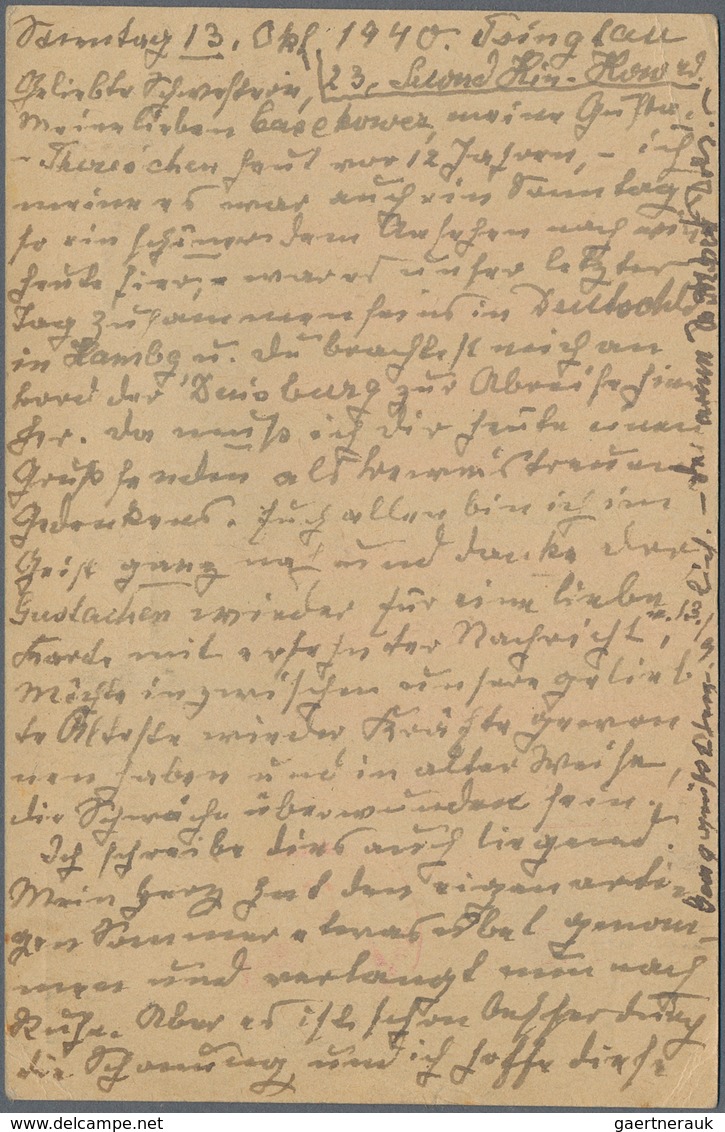 Sonntag 13. Okt. 1940. Tsingtau
Geliebte Schwestern, 23, Second Hsin-How rd.
Meine lieben meine Gusta-
Thereschen heut vor 12 Jahren, – ich
meine es war auch ein Sonntag
so ein schöner dem Ansehen nach wie
heute hier, war es unser letzter
Tag Zusammenseins in Deutschld
in Hambg u. Du brachtest mich an
bord der "Duisburg" zur Abreise hier
her. Da muß ich dir heute einen
Gruß senden als beweis treuen
Gedenkens. Euch allen bin ich im
Geist ganz nah und danke der
Gustachen wieder für eine liebe
Karte mit ersehnter Nachricht,
Möchte inzwischen unsere gelieb
te Älteste wieder Kräfte gewon
nen haben und in alter Weise,
die Schwäche überwunden sein.
Ich schreibe dies auch liegend.
Mein Herz hat den eigenarti-
gen Sommer etwas übel genom-
men und verlangt nun nach
Ruhe. Aber es ist schon Besserung
die Schonung, und ich hoffe diese
gaertnerauk